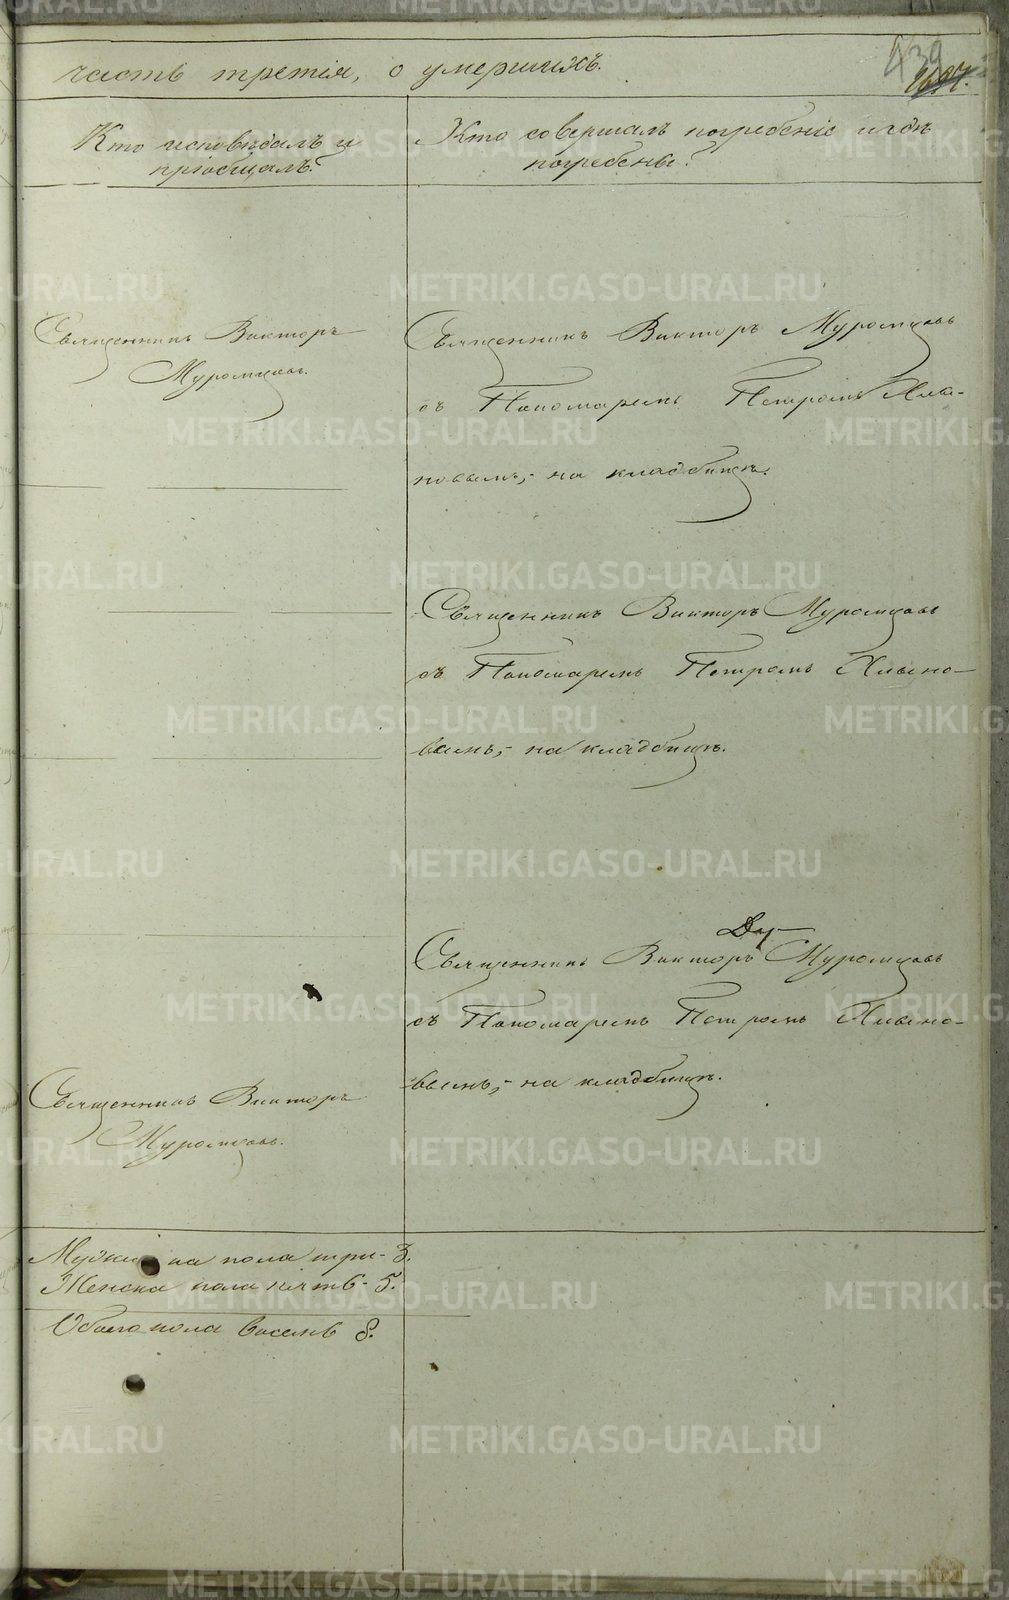 часть третія, о умершихъ.
439
Кто исповѣдалъ и
пріобщалъ?
Кто совершалъ погребеніе и гдѣ
погребены?
Священникъ Викторъ
Муромцовъ.
Священникъ Викторъ Муромцовъ
съ Пономаремъ Петромъ Хлы-
новымъ,- на кладбищѣ.
Священникъ Викторъ Муромцовъ
съ Пономаремъ Петромъ Хлыно-
вымъ,- на кладбищѣ.
Священникъ Викторъ Муромцовъ
съ Пономаремъ Петромъ Хлыно-
вымъ,- на кладбищѣ.
Священникъ Викторъ
Муромцовъ.
Мужска пола три- 3.
Женска пола пять- 5.
Обоего пола восемь 8.
METRIKI.GASO-URAL.RU